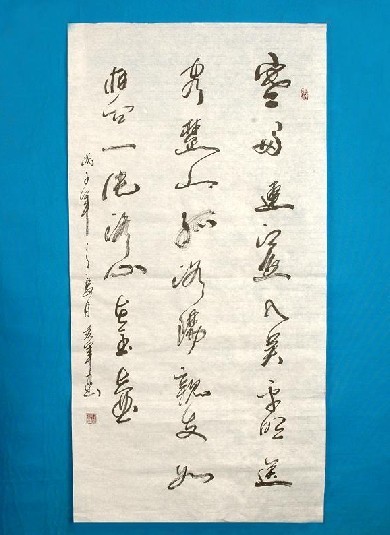 寒雨連江夜入吳平明送
客楚山孤洛陽親友如
相問一片冰心在玉壺
丙子年 夏月